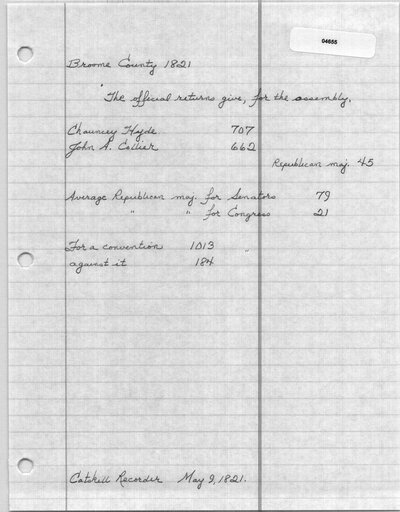 04655
Broome County 1821
The official returns give, for the assembly,
Chauncey Hyde 707
John A. Collier 662
Republican maj. 45
Average Republican maj. for Senators 79
" " for Congress 21
For a convention 1013 "
against it 184
Catskill Recorder May 9, 1821.